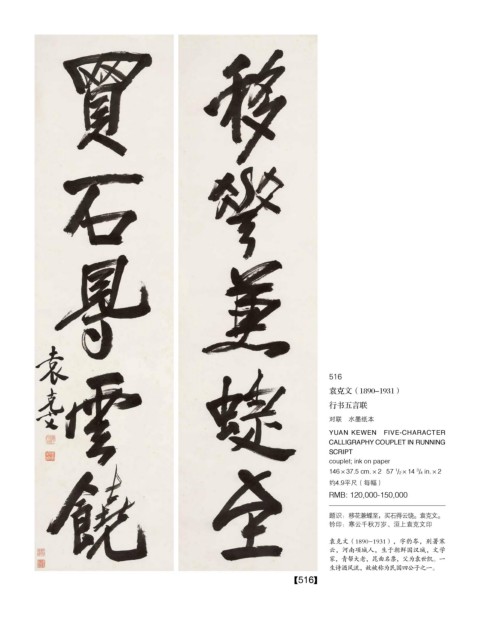 移華兼蝶至
買石得雲饒
袁克文
516
袁克文（1890–1931）
行书五言联
对联　水墨纸本
YUAN KEWEN　FIVE-CHARACTER
CALLIGRAPHY COUPLET IN RUNNING
SCRIPT
couplet; ink on paper
146 × 37.5 cm. × 2　57 1/2 × 14 3/4 in. × 2
约4.9平尺（每幅）
RMB: 120,000-150,000
题识：移花兼蝶至，买石得云饶。袁克文。
钤印：寒云千秋万岁、洹上袁克文印
袁克文（1890–1931），字豹岑，别署寒
云，河南项城人，生于朝鲜国汉城，文学
家，青帮大老，昆曲名票，父为袁世凯。一
生诗酒风流，故被称为民国四公子之一。
【516】